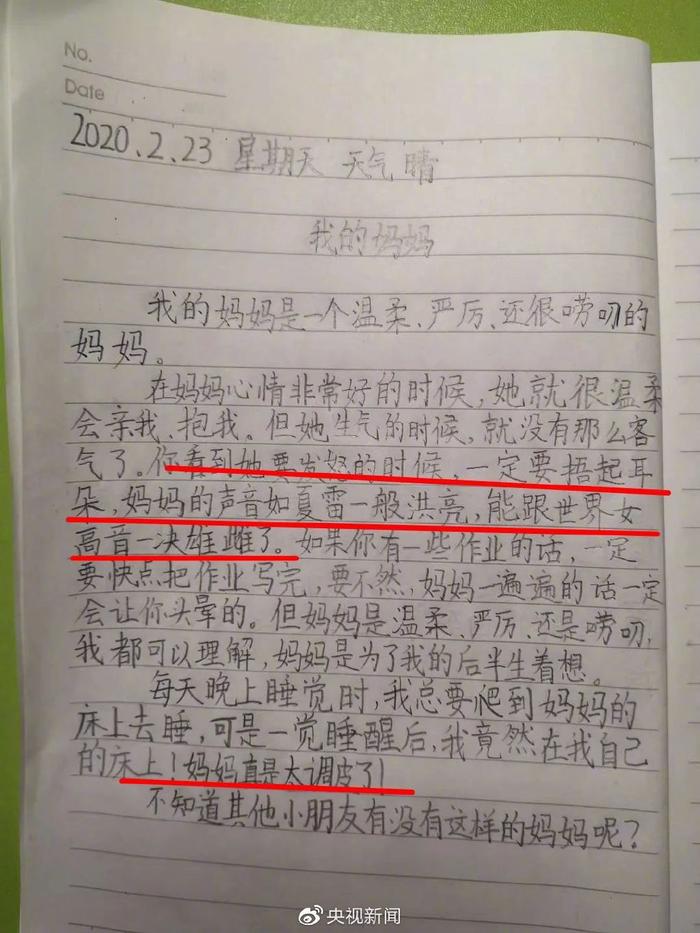 No.
Date
2020.2.23 星期天 天气晴
我的妈妈
我的妈妈是一个温柔、严厉、还很唠叨的
妈妈。
在妈妈心情非常好的时候，她就很温柔
会亲我、抱我。但她生气的时候，就没有那么客
气了。你看到她要发怒的时候，一定要捂起耳
朵，妈妈的声音如夏雷一般洪亮，能跟世界女
高音一决雄雌了。如果你有一些作业的话，一定
要快点把作业写完，要不然，妈妈一遍遍的话一定
会让你头晕的。但妈妈是温柔、严厉、还是唠叨，
我都可以理解，妈妈是为了我的后半生着想。
每天晚上睡觉时，我总要爬到妈妈的
床上去睡，可是一觉睡醒后，我竟然在我自己
的床上！妈妈真是太调皮了！
不知道其他小朋友有没有这样的妈妈呢？
央视新闻